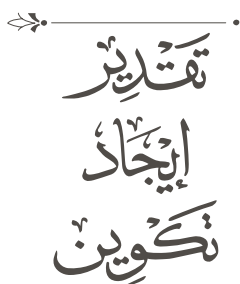 تَقْدِير
إِيْجَاد
تَكْوِين